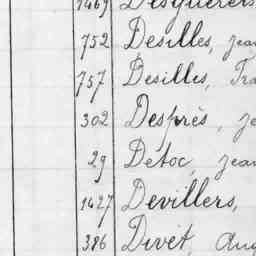 1469 Desguerets
752 Desilles, jea
757 Desilles, Tra
302 Després, je
29 Detoc, jean
1427 Devillers,
386 Divet, Aug